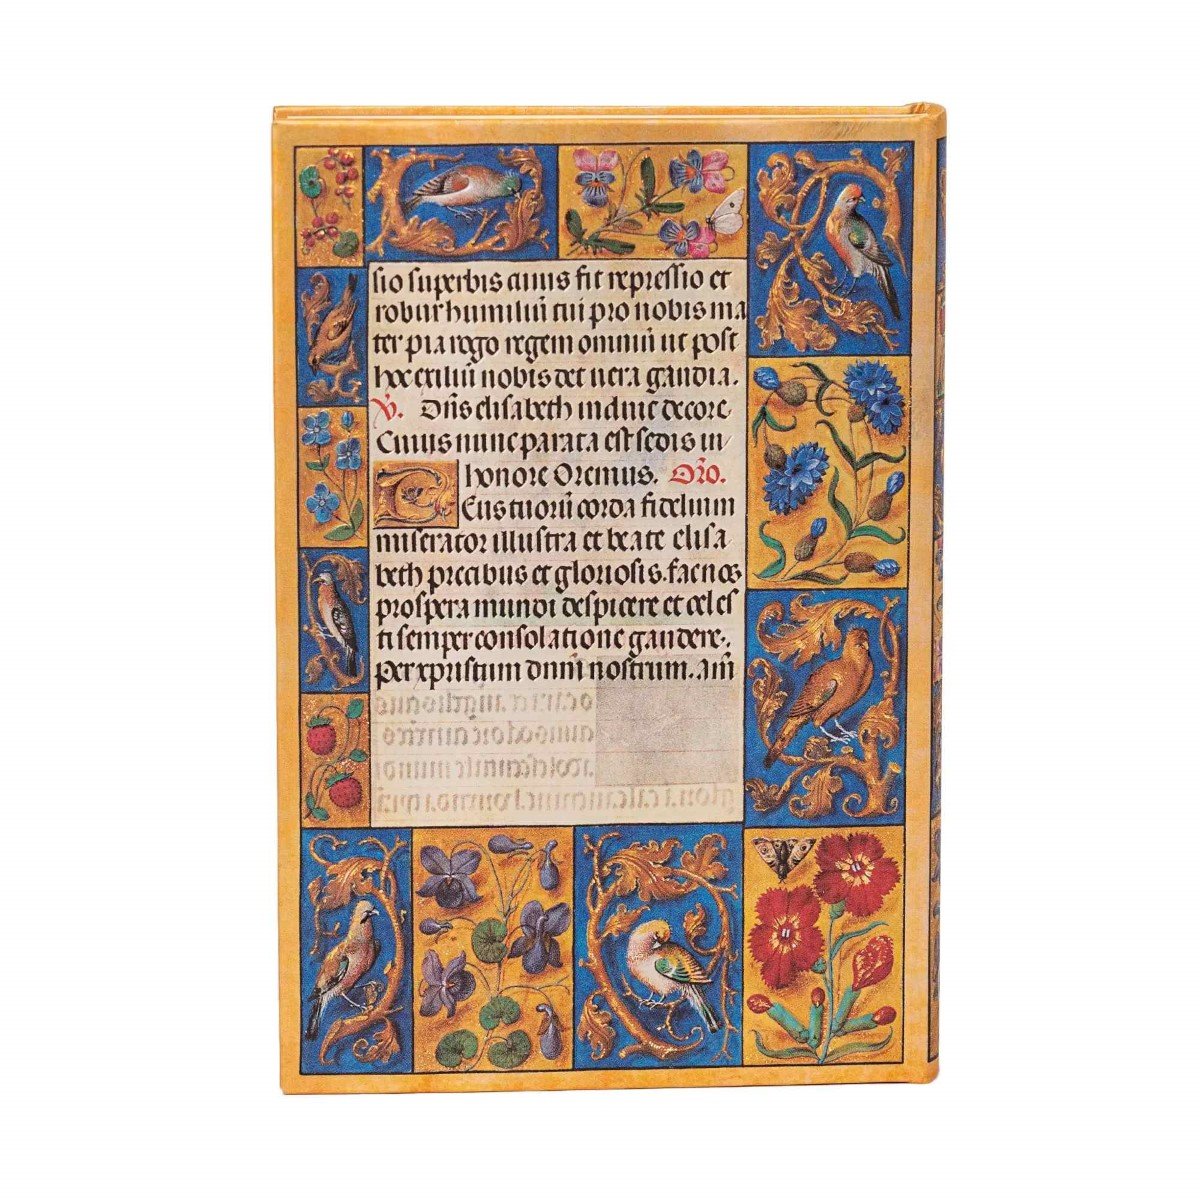 sio superbis cuius fit repressio et
robur humiliū tui pro nobis ma
ter pia rogo regem omniū ut post
hoc exiliū nobis det uera gaudia.
V̄. Dn̄s elisabeth induit decore
Cuius nunc parata est sedis in
honore Oremus. Or̄o.
Deus tuorū corda fidelium
miserator illustra et beate elisa
beth precibus et gloriosis. fac nos
prospera mundi despicere et celes
ti semper consolatione gaudere.
Per xp̄istum dn̄m nostrum. Am̄